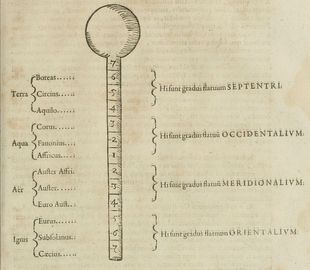 7
Boreas......
6
Terra
Circius....
5
Hi sunt gradus flatuum SEPTENTRI:
Aquilo....
4
Corus....
3
Aqua
Fauonius...
2
Hi sunt gradus flatuũ OCCIDENTALIVM:
Affricus....
1
Auster Affri.
2
Aër
Auster....
3
Hi sunt gradus flatuũ MERIDIONALIVM:
Euro Aust..
4
Eurus.....
5
Ignis
Subsolanus..
6
Hi sunt gradus flatuum ORIENTALIVM:
Cæcius....
7